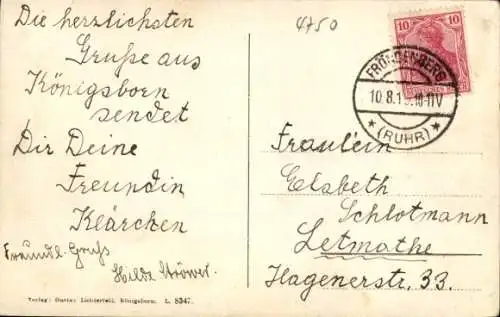 Die herzlichsten
Grüße aus
Königsborn
sendet
Dir Deine
Freundin
Klärchen
Freundl. Gruß
Hilde Ströwer.
Verlag: Gustav Lichterfeld, Königsborn. L. 8347.
4750
10 10
FRÖNDENBERG
10.8.1 .10-11V
* (RUHR) *
Fräulein
Elsbeth
Schlotmann
Letmathe
Hagenerstr. 33.